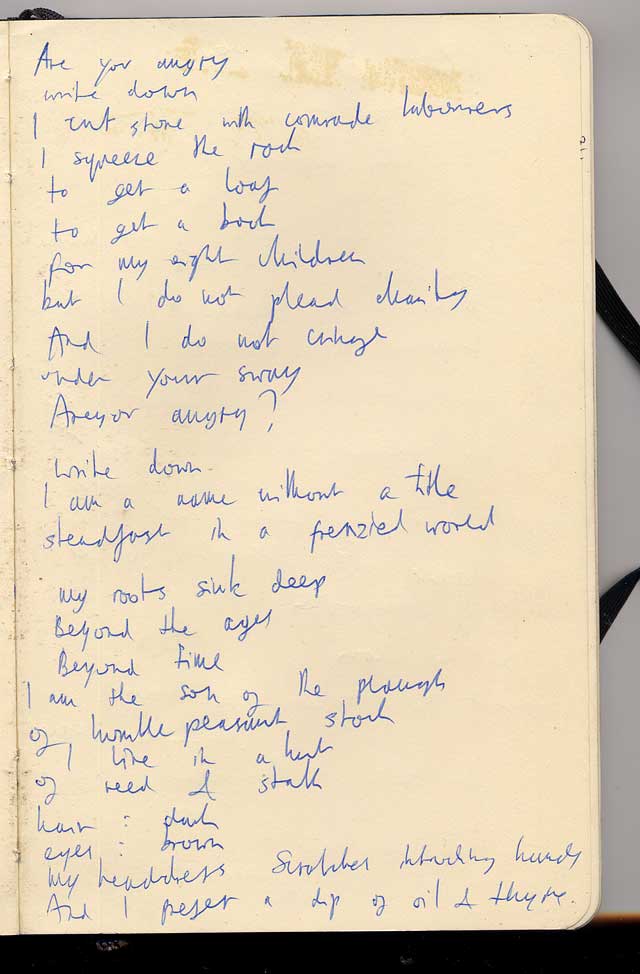 Are you angry
write down
I cut stone with comrade labourers
I squeeze the rock
to get a loaf
to get a book
for my eight children
but I do not plead charity
And I do not cringe
under your sway
Are you angry?
write down.
I am a name without a title
steadfast in a frenzied world
my roots sink deep
Beyond the ages
Beyond time
I am the son of the plough
of humble peasant stock
I live in a hut
of reed & stalk
hair : dark
eyes : brown
My headdress scratches intruding hands
And I prefer a dip of oil & thyme.